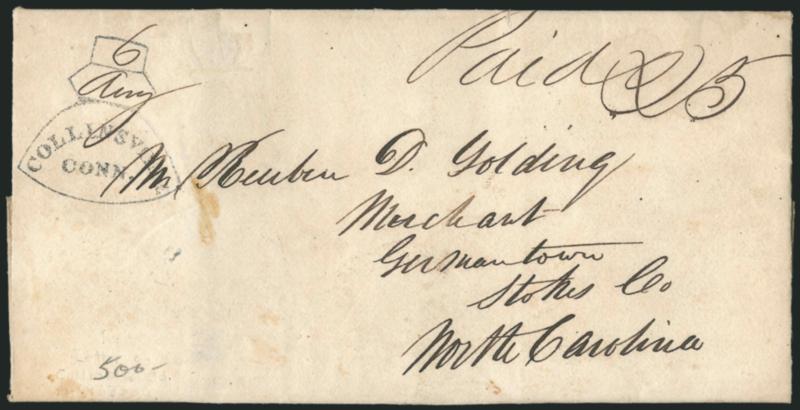 6
Aug
Paid 25
COLLINSVILLE
CONN.
Mr. Reuben D. Golding
Merchant
Germantown
Stokes Co
North Carolina
500-